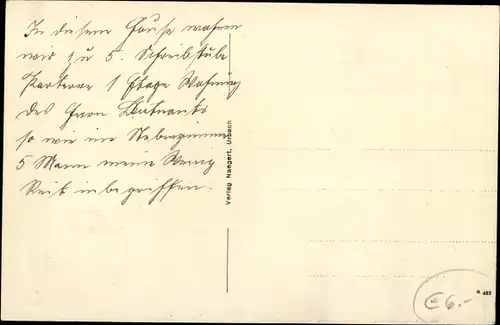 In diesem Hause wohnen
wir zu 5. Schreibstube
Parterre 1 Etage Wohnung
des Herrn Leutnants
so wie im Nebenzimmer
5 Mann meine
inbegriffen.
Verlag Naegert, Urbach
€6.-